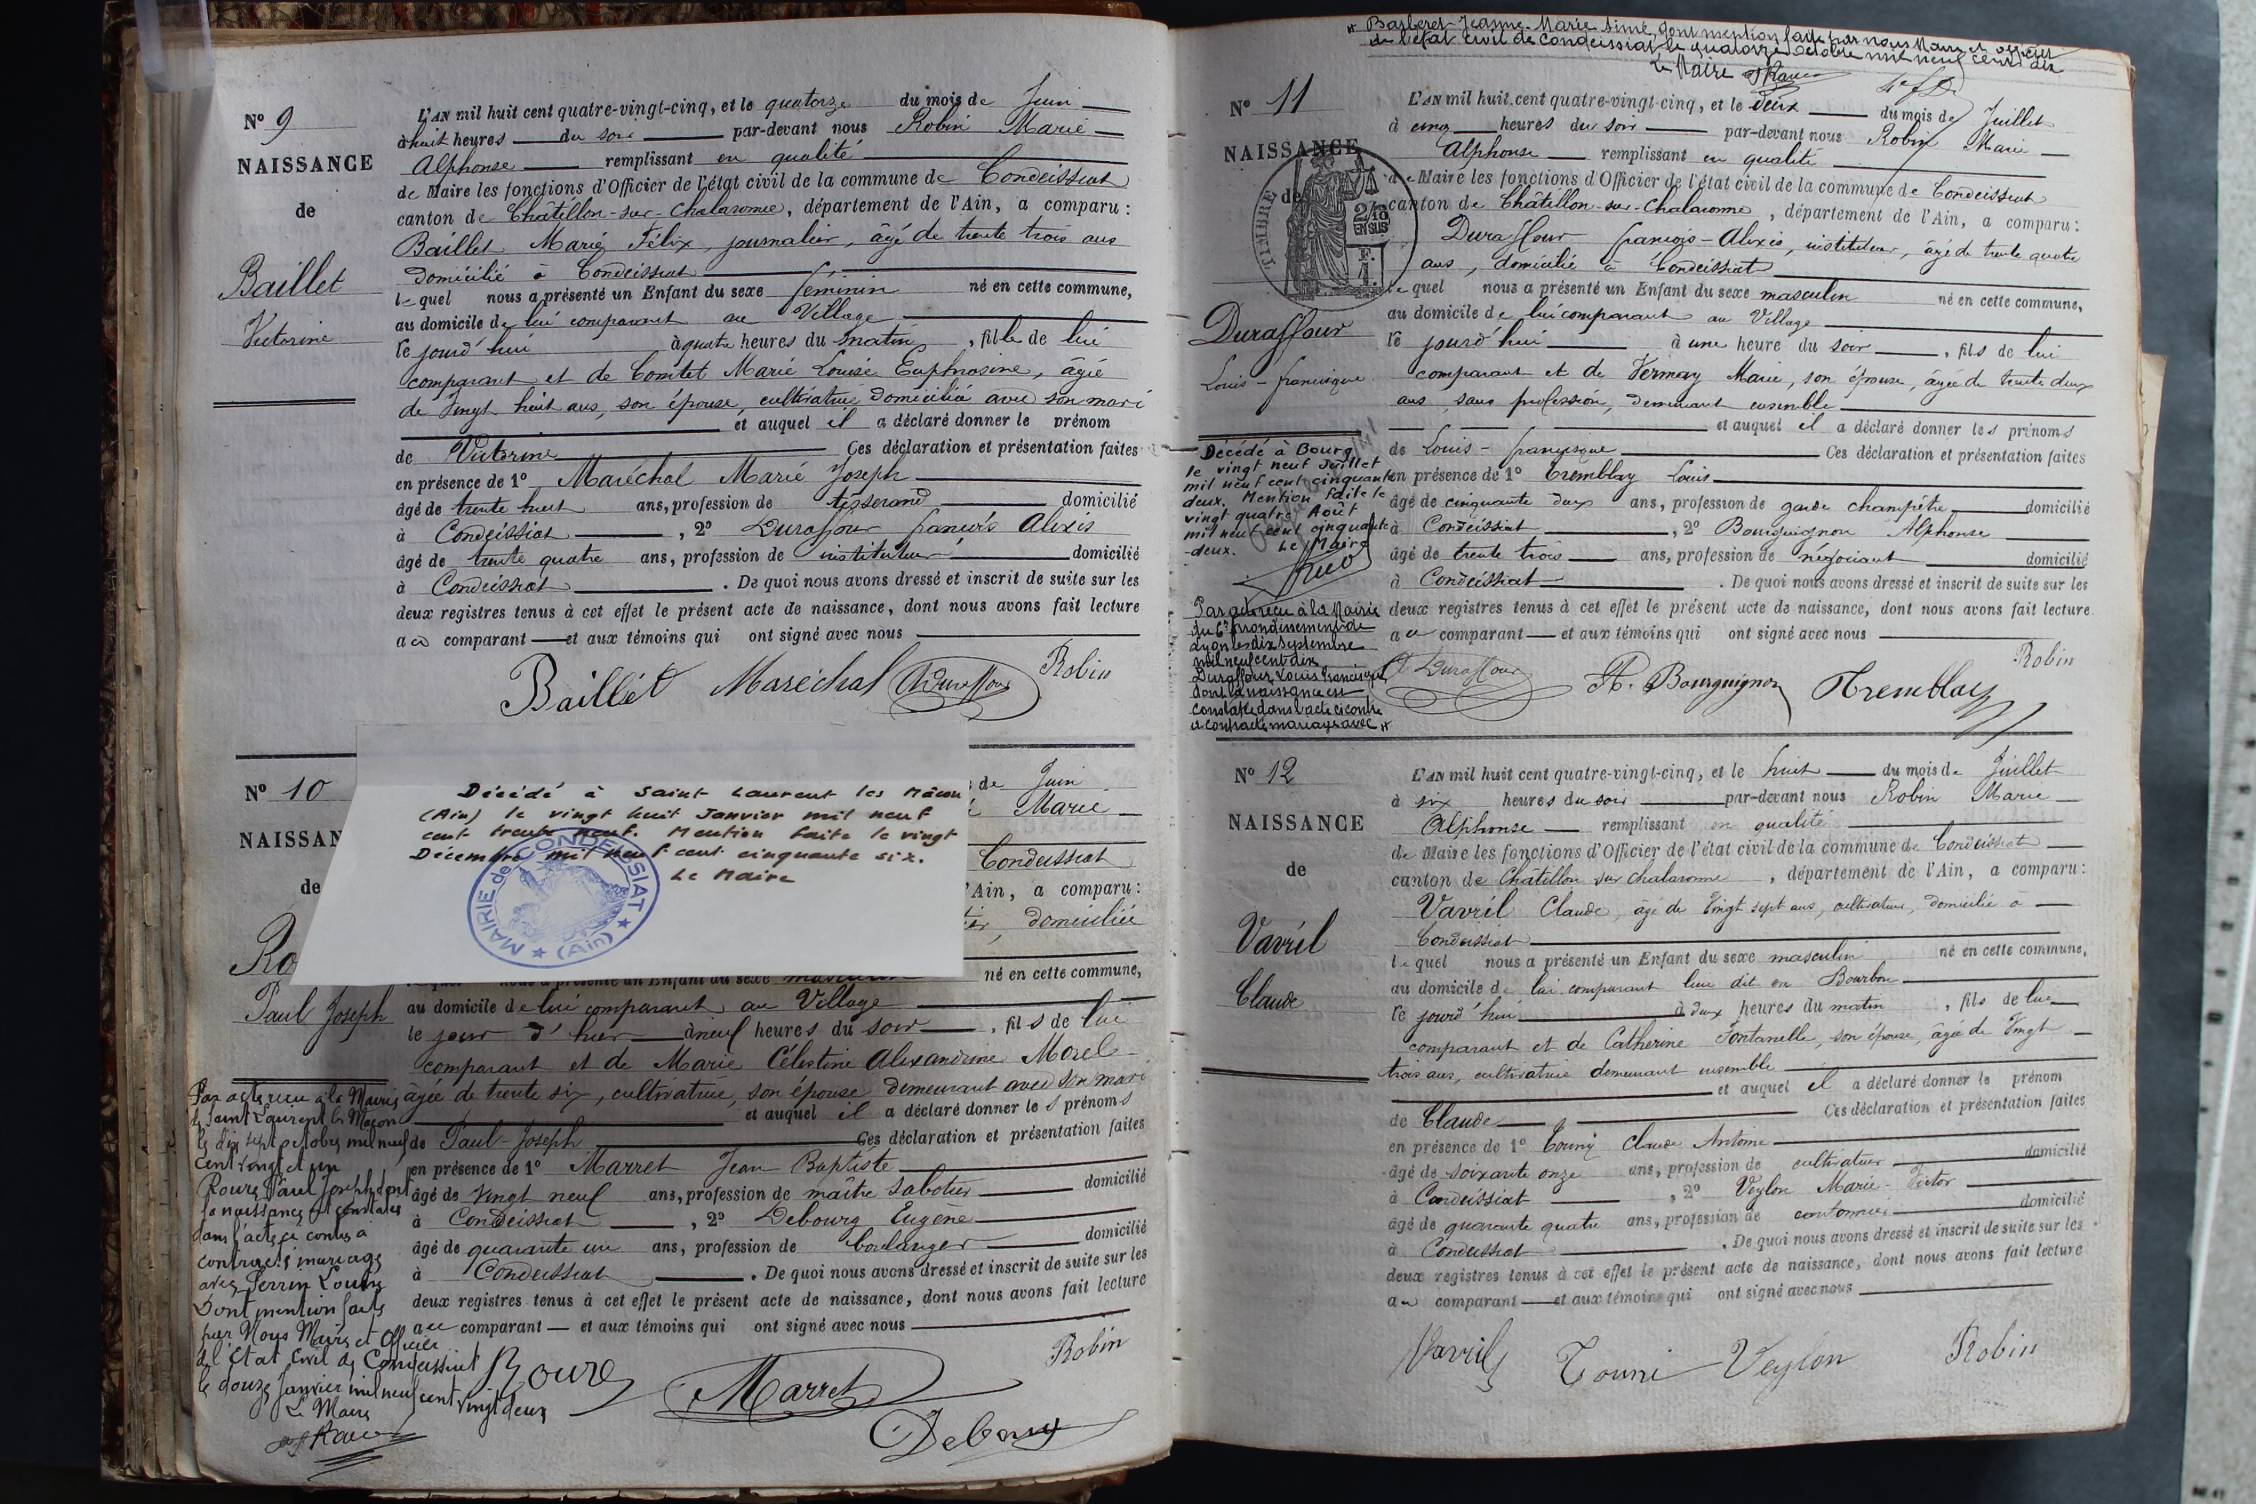 Nº 9
NAISSANCE
de
Baillet
Victorine
L'AN mil huit cent quatre-vingt-cinq, et le quatorze du mois de Juin
à huit heures du soir par-devant nous Robin Marie
Alphonse remplissant en qualité
de Maire les fonctions d'Officier de l'état civil de la commune de Condeissiat
canton de Châtillon-sur-Chalaronne, département de l'Ain, a comparu :
Baillet Marie Félix, journalier, âgé de trente trois ans
domicilié à Condeissiat
lequel nous a présenté un Enfant du sexe féminin né en cette commune,
au domicile de lui comparant au Village
le jourd'hui à quatre heures du matin, fille de lui
comparant et de Comtet Marie Louise Euphrosine, âgée
de vingt huit ans, son épouse, cultivatrice domiciliée avec son mari
et auquel il a déclaré donner le prénom
de Victorine Ces déclaration et présentation faites
en présence de 1º Maréchal Marie Joseph
âgé de trente huit ans, profession de tisserand domicilié
à Condeissiat, 2º Duraffour françois Alexis
âgé de trente quatre ans, profession de instituteur domicilié
à Condeissiat. De quoi nous avons dressé et inscrit de suite sur les
deux registres tenus à cet effet le présent acte de naissance, dont nous avons fait lecture
au comparant et aux témoins qui ont signé avec nous
Baillet Maréchal Duraffour Robin
Nº 10
NAISSAN
de
Ro
Paul Joseph
Décédé à Saint Laurent les Mâcon
(Ain) le vingt huit Janvier mil neuf
cent trente neuf. Mention faite le vingt
Décembre mil neuf cent cinquante six.
Le Maire
MAIRIE de CONDEISSIAT
(Ain)
de Juin
Marie
Condeissiat
'Ain, a comparu :
domiciliée
lequel nous a présenté un Enfant du sexe masculin né en cette commune,
au domicile de lui comparant au Village
le jour d'hier à neuf heures du soir, fils de lui
comparant et de Marie Célestine Alexandrine Morel
âgée de trente six, cultivatrice, son épouse demeurant avec son mari
et auquel il a déclaré donner les prénoms
de Paul-Joseph Ces déclaration et présentation faites
en présence de 1º Marret Jean Baptiste
âgé de vingt neuf ans, profession de maître sabotier domicilié
à Condeissiat, 2º Debourg Eugène
âgé de quarante un ans, profession de boulanger domicilié
à Condeissiat. De quoi nous avons dressé et inscrit de suite sur les
deux registres tenus à cet effet le présent acte de naissance, dont nous avons fait lecture
au comparant et aux témoins qui ont signé avec nous
Roure Marret Robin
Debourg
Par acte reçu à la Mairie
de Saint Laurent les Macon
le dix sept octobre mil neuf
cent vingt et un
Roure Paul Joseph dont
la naissance est constatée
dans l'acte ci contre a
contracté mariage
avec Perrin Louise
Dont mention faite
par Nous Maire et Officier
de l'état civil de Condeissiat
le douze Janvier mil neuf cent vingt deux
Le Maire
* Barberet Jeanne-Marie Aimé, dont mention faite par nous Maire et officier
de l'état civil de Condeissiat le quatorze octobre mil neuf cent dix
Le Maire
Nº 11
NAISSANCE
de
TIMBRE
2/10
EN SUS
F.
1.
Duraffour
Louis-francisque
L'AN mil huit cent quatre-vingt-cinq, et le deux du mois de Juillet
à cinq heures du soir par-devant nous Robin Marie
Alphonse remplissant en qualité
de Maire les fonctions d'Officier de l'état civil de la commune de Condeissiat
canton de Châtillon-sur-Chalaronne, département de l'Ain, a comparu :
Duraffour françois-Alexis, instituteur, âgé de trente quatre
ans, domicilié à Condeissiat
lequel nous a présenté un Enfant du sexe masculin né en cette commune,
au domicile de lui comparant au Village
le jourd'hui à une heure du soir, fils de lui
comparant et de Vermay Marie, son épouse, âgée de trente deux
ans, sans profession, demeurant ensemble
et auquel il a déclaré donner les prénoms
de Louis-francisque Ces déclaration et présentation faites
en présence de 1º Tremblay Louis
âgé de cinquante deux ans, profession de garde champêtre domicilié
à Condeissiat, 2º Bourguignon Alphonse
âgé de trente trois ans, profession de négociant domicilié
à Condeissiat. De quoi nous avons dressé et inscrit de suite sur les
deux registres tenus à cet effet le présent acte de naissance, dont nous avons fait lecture
au comparant et aux témoins qui ont signé avec nous
Duraffour A. Bourguignon Tremblay Robin
Décédé à Bourg
le vingt neuf Juillet
mil neuf cent cinquante
deux. Mention faite le
vingt quatre Août
mil neuf cent cinquante
-deux. Le Maire
Par acte reçu à la Mairie
du 6e arrondissement de
Lyon le dix septembre
mil neuf cent dix
Duraffour Louis Francisque
dont la naissance est
constatée dans l'acte ci contre
a contracté mariage avec *
Nº 12
NAISSANCE
de
Vavril
Claude
L'AN mil huit cent quatre-vingt-cinq, et le huit du mois de Juillet
à six heures du soir par-devant nous Robin Marie
Alphonse remplissant en qualité
de Maire les fonctions d'Officier de l'état civil de la commune de Condeissiat
canton de Châtillon sur Chalaronne, département de l'Ain, a comparu :
Vavril Claude, âgé de vingt sept ans, cultivateur, domicilié à
Condeissiat
lequel nous a présenté un Enfant du sexe masculin né en cette commune,
au domicile de lui comparant lieu dit en Bourbon
le jourd'hui à deux heures du matin, fils de lui
comparant et de Catherine Fontanelle, son épouse, âgée de vingt
trois ans, cultivatrice demeurant ensemble
et auquel il a déclaré donner le prénom
de Claude Ces déclaration et présentation faites
en présence de 1º Touny Claude Antoine
âgé de soixante onze ans, profession de cultivateur domicilié
à Condeissiat, 2º Veylon Marie-Victor
âgé de quarante quatre ans, profession de cantonnier domicilié
à Condeissiat. De quoi nous avons dressé et inscrit de suite sur les
deux registres tenus à cet effet le présent acte de naissance, dont nous avons fait lecture
au comparant et aux témoins qui ont signé avec nous
Vavril Touni Veylon Robin